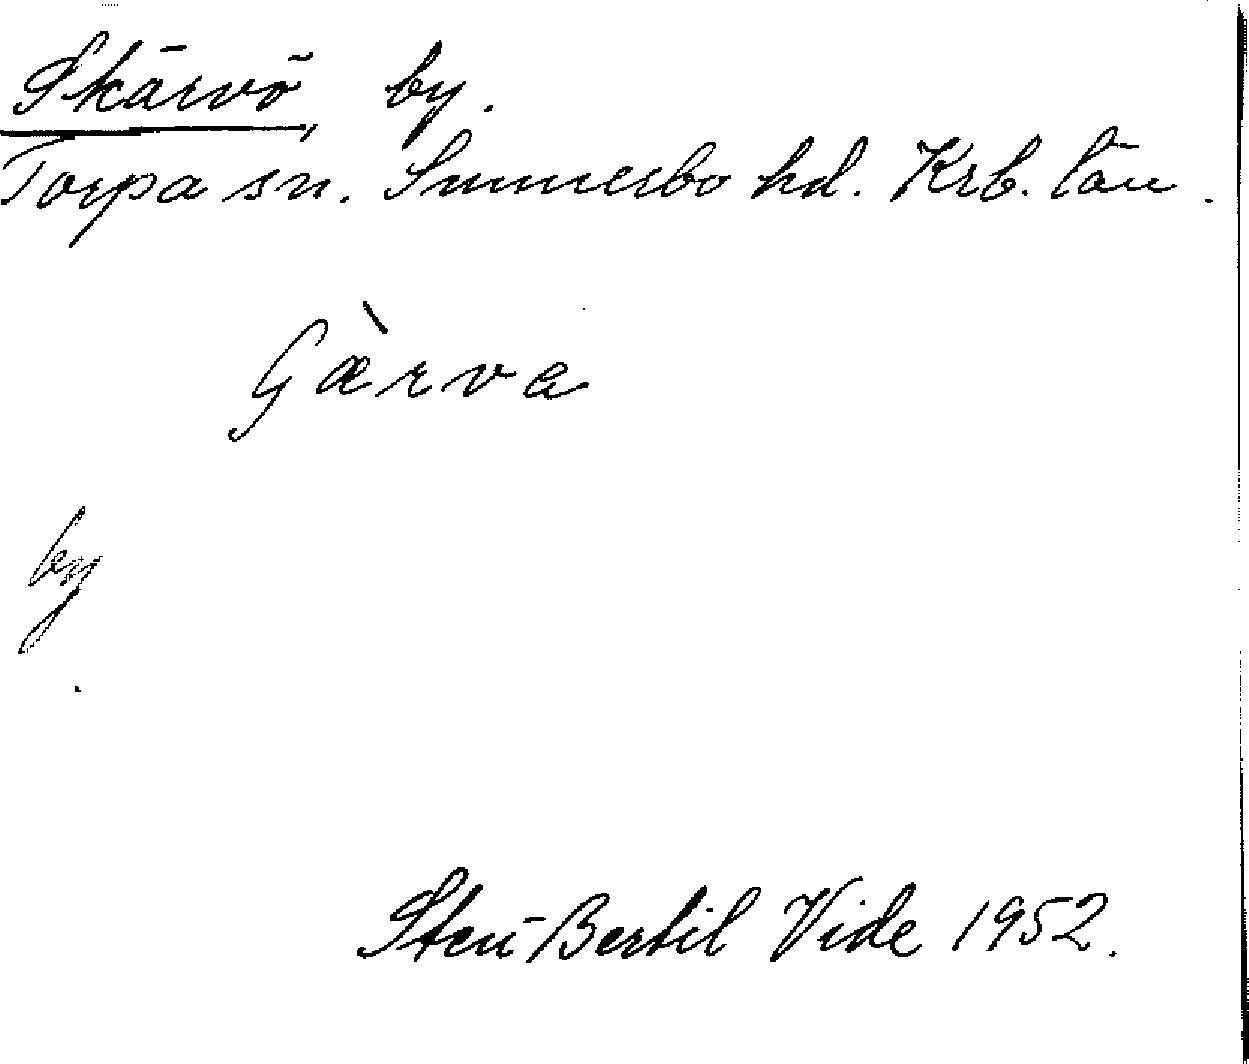 Skärvö, by.
Torpa sn. Sunnerbo hd. Krb. län.
Gæ̀rva
by
Sten-Bertil Vide 1952.